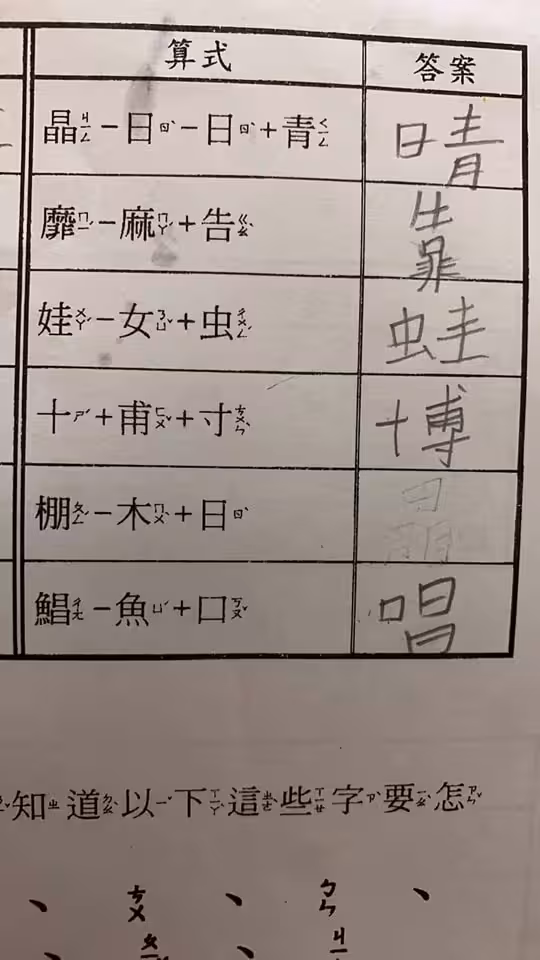 算式 答案
晶ㄐㄧㄥ－日ㄖˋ－日ㄖˋ＋青ㄑㄧㄥ 晴
靡ㄇㄧˇ－麻ㄇㄚˊ＋告ㄍㄠˋ 靠
娃ㄨㄚˊ－女ㄋㄩˇ＋虫ㄔㄨㄥˊ 蛙
十ㄕˊ＋甫ㄈㄨˇ＋寸ㄘㄨㄣˋ 博
棚ㄆㄥˊ－木ㄇㄨˋ＋日ㄖˋ
鯧ㄔㄤ－魚ㄩˊ＋口ㄎㄡˇ 唱
知ㄓ道ㄉㄠˋ以ㄧˇ下ㄒㄧㄚˋ這ㄓㄜˋ些ㄒㄧㄝ字ㄗˋ要ㄧㄠˋ怎ㄗㄣˇ
、 ㄘㄨ 、 ㄅㄣ 、